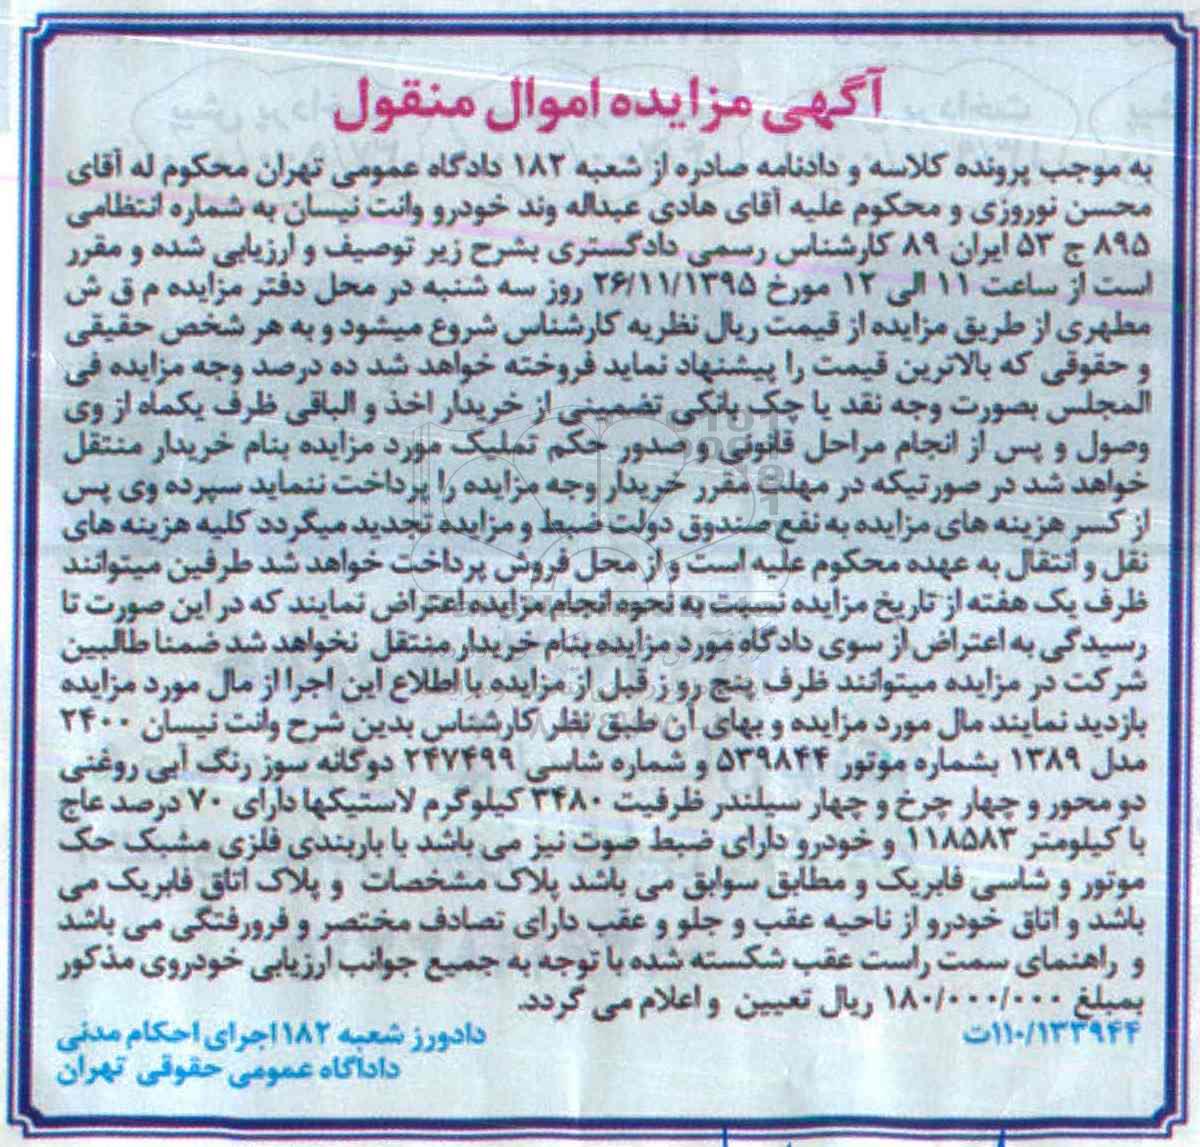 آگهی مزایده اموال منقول
به موجب پرونده کلاسه و دادنامه صادره از شعبه ۱۸۲ دادگاه عمومی تهران محکوم له آقای
محسن نوروزی و محکوم علیه آقای هادی عبداله وند خودرو وانت نیسان به شماره انتظامی
۸۹۵ ج ۵۳ ایران ۸۹ کارشناس رسمی دادگستری بشرح زیر توصیف و ارزیابی شده و مقرر
است از ساعت ۱۱ الی ۱۲ مورخ ۲۶/۱۱/۱۳۹۵ روز سه شنبه در محل دفتر مزایده م ق ش
مطهری از طریق مزایده از قیمت ریال نظریه کارشناس شروع میشود و به هر شخص حقیقی
و حقوقی که بالاترین قیمت را پیشنهاد نماید فروخته خواهد شد ده درصد وجه مزایده فی
المجلس بصورت وجه نقد یا چک بانکی تضمینی از خریدار اخذ و الباقی ظرف یکماه از وی
وصول و پس از انجام مراحل قانونی و صدور حکم تملیک مورد مزایده بنام خریدار منتقل
خواهد شد در صورتیکه در مهلت مقرر خریدار وجه مزایده را پرداخت ننماید سپرده وی پس
از کسر هزینه های مزایده به نفع صندوق دولت ضبط و مزایده تجدید میگردد کلیه هزینه های
نقل و انتقال به عهده محکوم علیه است و از محل فروش پرداخت خواهد شد طرفین میتوانند
ظرف یک هفته از تاریخ مزایده نسبت به نحوه انجام مزایده اعتراض نمایند که در این صورت تا
رسیدگی به اعتراض از سوی دادگاه مورد مزایده بنام خریدار منتقل نخواهد شد ضمنا طالبین
شرکت در مزایده میتوانند ظرف پنج رو ز قبل از مزایده با اطلاع این اجرا از مال مورد مزایده
بازدید نمایند مال مورد مزایده و بهای آن طبق نظر کارشناس بدین شرح وانت نیسان ۲۴۰۰
مدل ۱۳۸۹ بشماره موتور ۵۳۹۸۴۴ و شماره شاسی ۲۴۷۴۹۹ دوگانه سوز رنگ آبی روغنی
دو محور و چهار چرخ و چهار سیلندر ظرفیت ۳۴۸۰ کیلوگرم لاستیکها دارای ۷۰ درصد عاج
با کیلومتر ۱۱۸۵۸۳ و خودرو دارای ضبط صوت نیز می باشد با باربندی فلزی مشبک حک
موتور و شاسی فابریک و مطابق سوابق می باشد پلاک مشخصات و پلاک اتاق فابریک می
باشد و اتاق خودرو از ناحیه عقب و جلو و عقب دارای تصادف مختصر و فرورفتگی می باشد
و راهنمای سمت راست عقب شکسته شده با توجه به جمیع جوانب ارزیابی خودروی مذکور
بمبلغ ۱۸۰/۰۰۰/۰۰۰ ریال تعیین و اعلام می گردد.
۱۱۰/۱۳۳۹۴۴ت
دادورز شعبه ۱۸۲ اجرای احکام مدنی
داداگاه عمومی حقوقی تهران